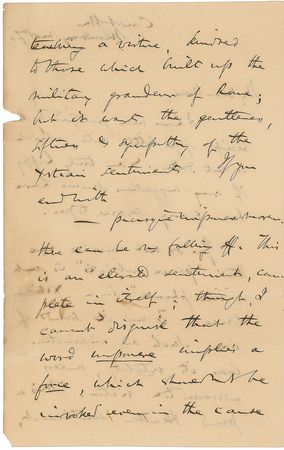 teaching a virtue, kindred
to those which built up the
military grandeur of Rome;
but it wants the gentleness,
& sympathy of the
Xstian sentiments. If you
end with
— pacisque imponere morem.
there can be no falling off. This
is an elevated sentiment, com-
plete in itself; though, I
cannot disguise that the
word imponere implies a
force, which should not be
invoked even in the cause